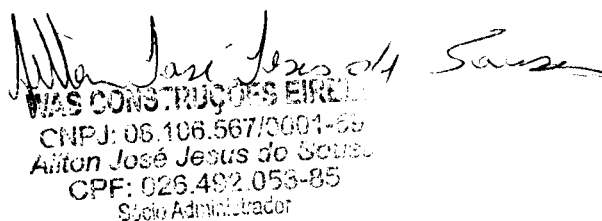 Ailton José Jesus de Sousa
WAS CONSTRUÇÕES EIRELI
CNPJ: 06.106.567/0001-69
Ailton José Jesus de Sousa
CPF: 026.492.053-85
Sócio Administrador